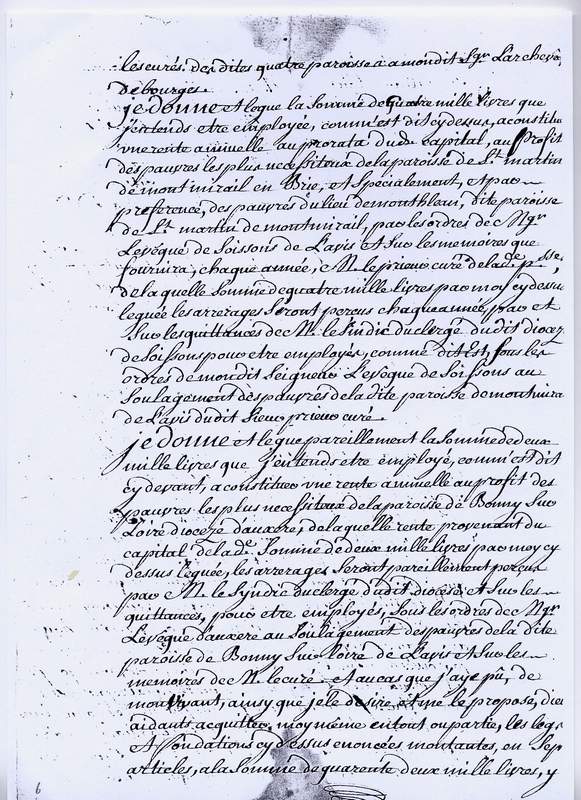 les curés des dites quatre paroisses à mondit Sgr L'archevê
de bourges.
je donne et legue la Somme de quatre mille livres que
j'entends etre employée, comm'est dit cy dessus, a constitu
une rente annuelle au prorata dud. capital, au profit
des pauvres les plus necessiteux de la paroisse de St. martin
de montmirail en Brie, et Specialement, et par
preference, des pauvres du lieu de monthleau, dite paroisse
de St. martin de montmirail, par les ordres de Ngr
L'evêque de Soissons de L'avis et Sur les memoires que
fournira, chaque année, M. le prieur curé de lade. psse,
de la quelle Somme de quatre mille livres par moy cy dessus
leguée les arrerages Seront perçus chaque année, par et
Sur les quittances de M. le Sindic du clergé du dit dioceze
de Soissons pour etre employés, comme dit Est, Sous les
ordres de mondit Seigneur L'evêque de Soissons au
Soulagement des pauvres de la dite paroisse de montmira
de L'avis du dit Sieur prieur curé.
je donne et legue pareillement la Somme de deux
mille livres que j'entends etre employé, comm'est dit
cy devant, a constituer une rente annuelle au profit des
pauvres les plus necessiteux de la paroisse de Bonny Sur
Loire dioceze d'auxere, de laquelle rente provenant du
capital de lade. Somme de deux mille livres par moy cy
dessus leguée, les arrerages Seront pareillement perçus
par M. le Syndic du clergé dudit diocese et Sur les
quittances, pour etre employés, Sous les ordres de Ngr
L'evêque d'auxere au Soulagement des pauvres de la dite
paroisse de Bonny Sur Loire de L'avis et Sur les
memoires de M. le curé. et au cas que j'aye pû, de
mon vivant, ainsy que je le desire, et me le propose, dieu
aidant, acquitter, moy même en tout ou partie, les legs
et fondations cy dessus enoncées montantes, en Sept
articles, a la Somme de quarente deux mille livres, y
6